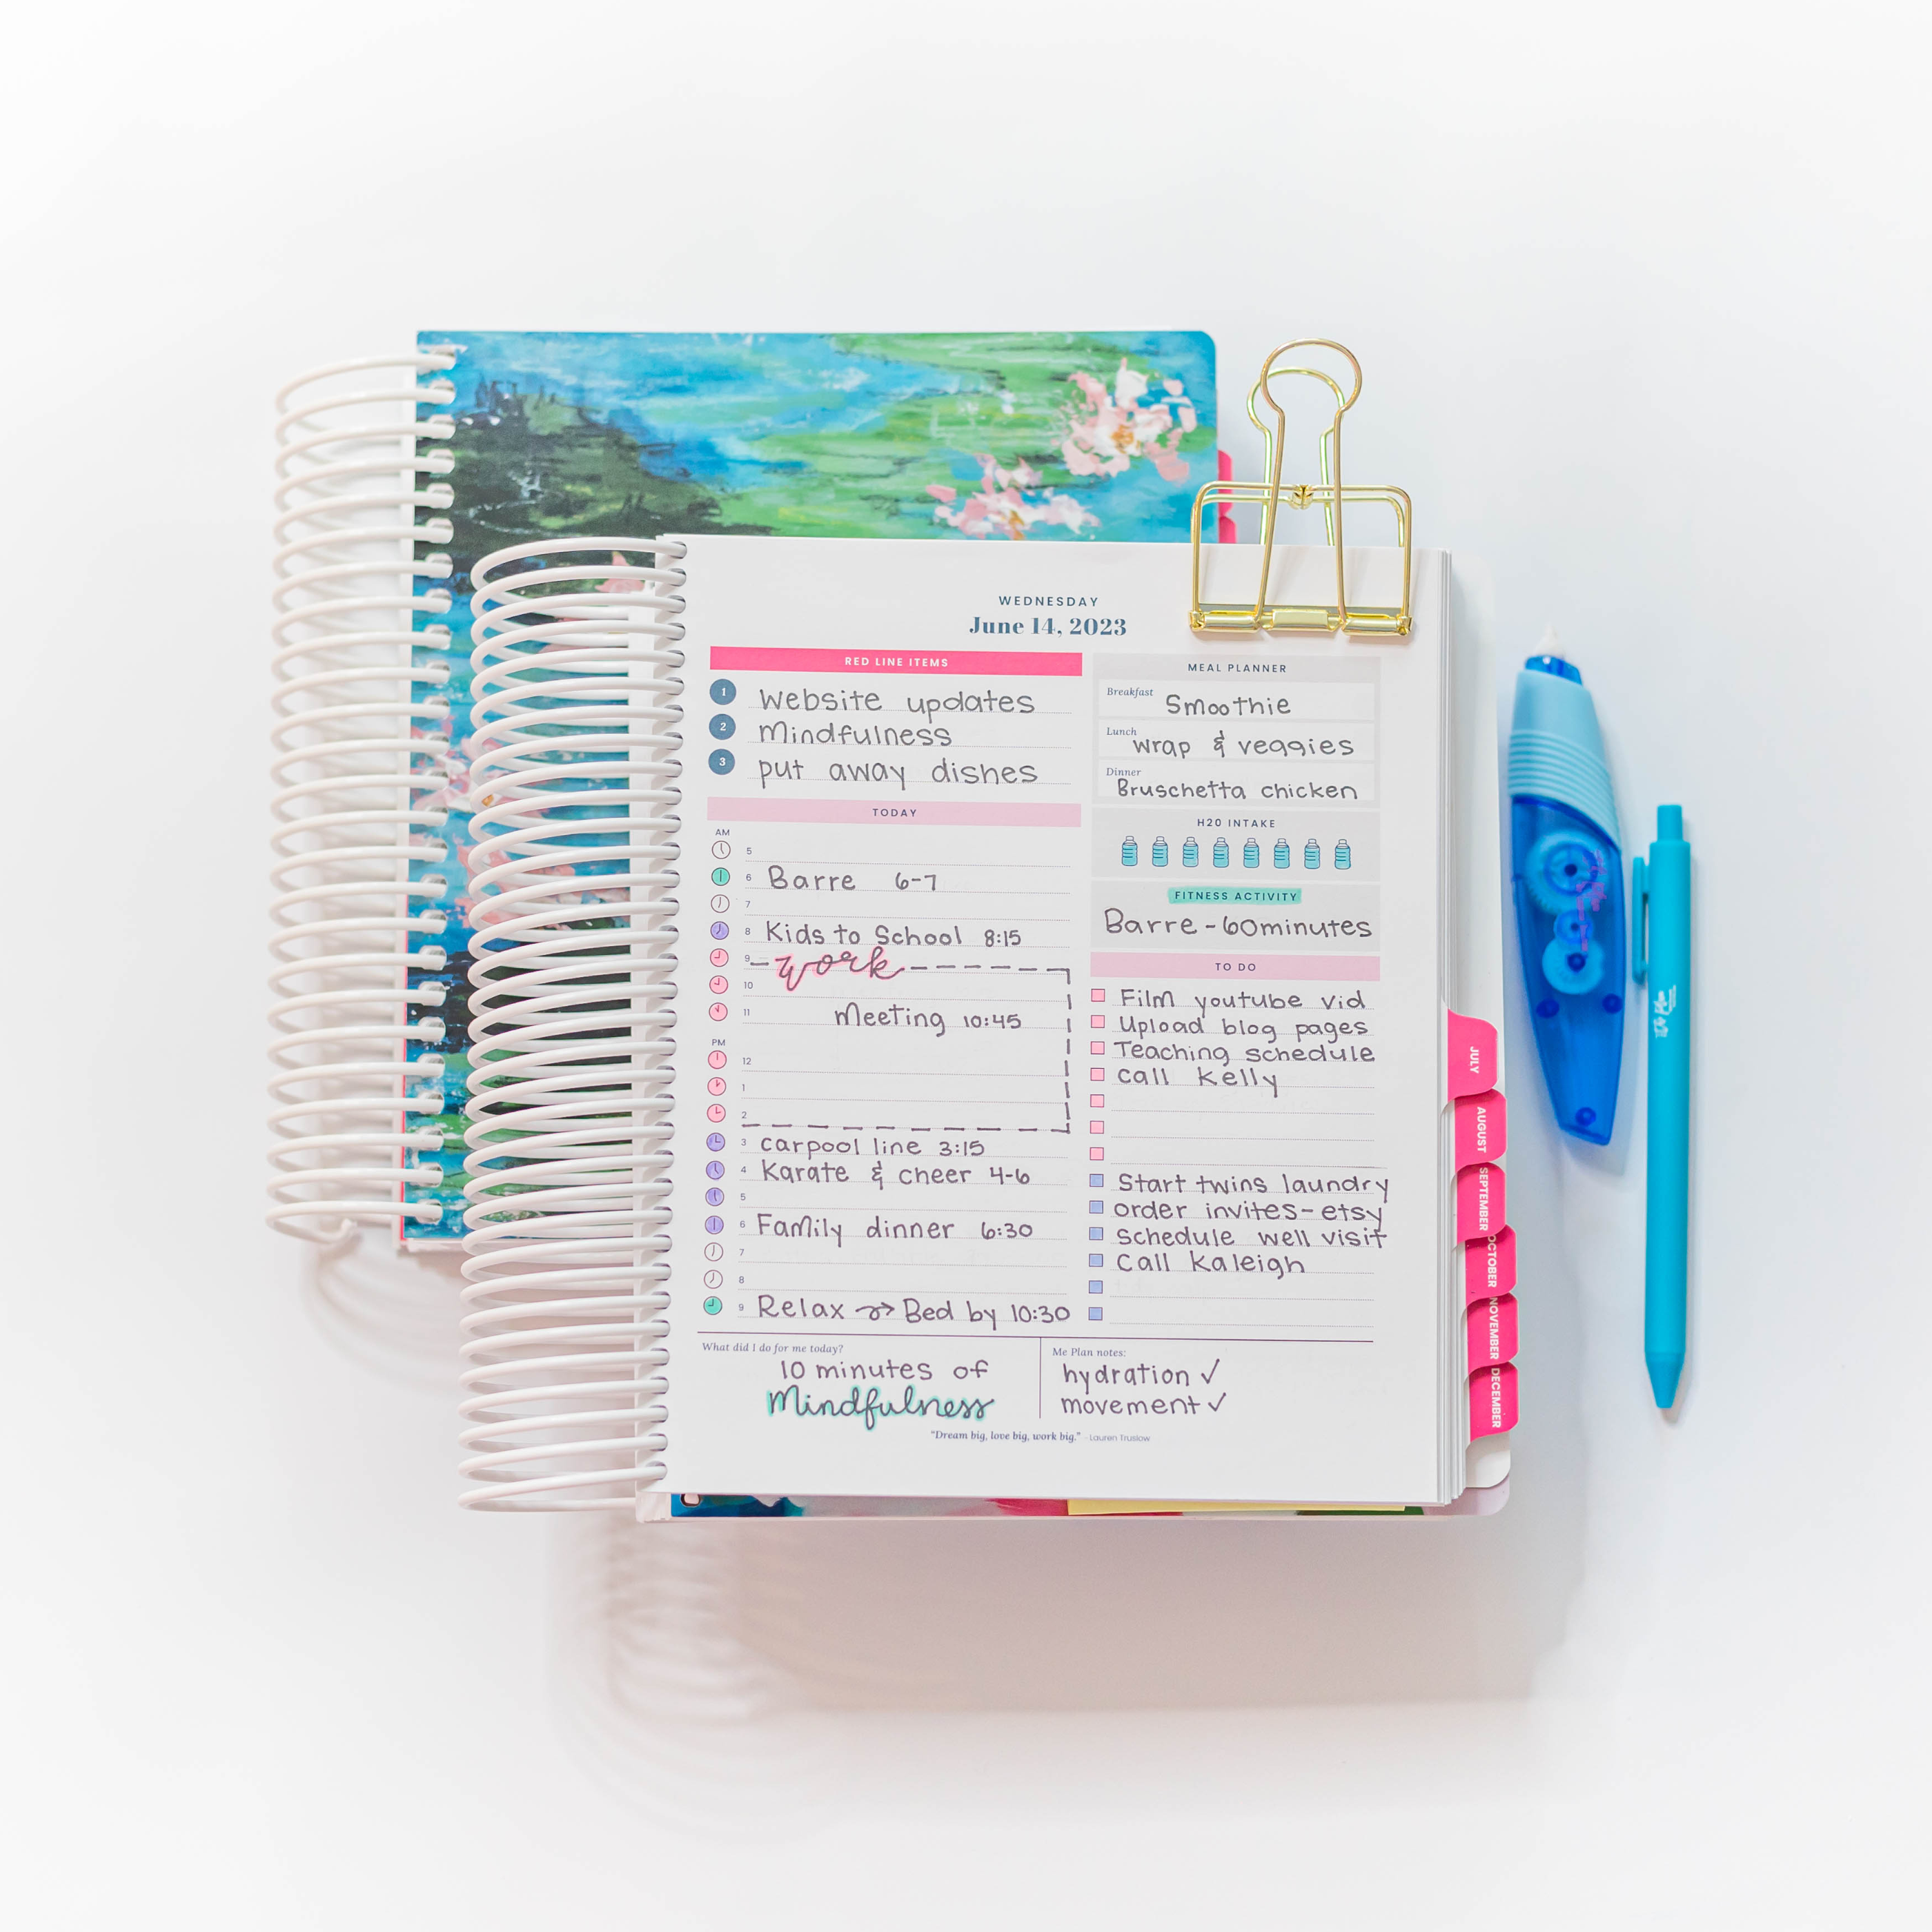 WEDNESDAY
June 14, 2023
RED LINE ITEMS
1 website updates
2 Mindfulness
3 put away dishes
TODAY
AM
5
6 Barre 6-7
7
8 Kids to School 8:15
9 work
10
11 Meeting 10:45
PM
12
1
2
3 carpool line 3:15
4 Karate & cheer 4-6
5
6 Family dinner 6:30
7
8
9 Relax → Bed by 10:30
MEAL PLANNER
Breakfast Smoothie
Lunch wrap & veggies
Dinner Bruschetta chicken
H20 INTAKE
FITNESS ACTIVITY
Barre - 60minutes
TO DO
Film youtube vid
Upload blog pages
Teaching schedule
call Kelly
Start twins laundry
order invites - etsy
Schedule well visit
Call Kaleigh
What did I do for me today?
10 minutes of
Mindfulness
Me Plan notes:
hydration ✓
movement ✓
"Dream big, love big, work big." - Lauren Truslow
JULY
AUGUST
SEPTEMBER
OCTOBER
NOVEMBER
DECEMBER